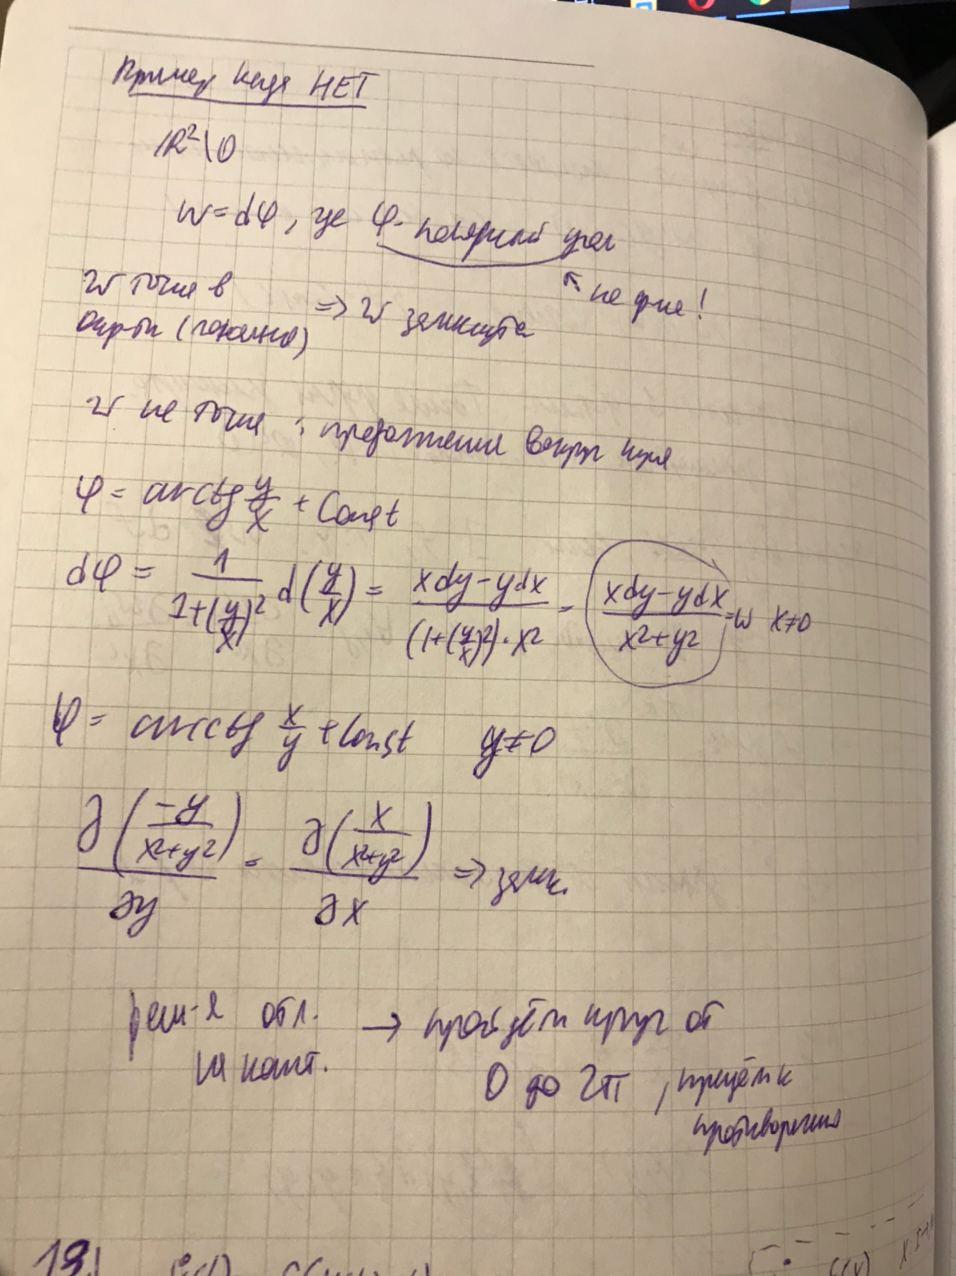 Пример когда НЕТ
ℝ²\0
w = dφ, где φ - полярный угол
↖ не ф-ия!
w точна в окр-ти (локально) => w замкнута
w не точна : продолжения вокруг нуля
φ = arctg y/x + Const
dφ = 1/(1+(y/x)²) d(y/x) = (xdy-ydx)/((1+(y/x)²)·x²) = (xdy-ydx)/(x²+y²) = w x≠0
φ = arcctg x/y + Const y≠0
∂(-y/(x²+y²))/∂y = ∂(x/(x²+y²))/∂x => замк.
реш-я отл. на конст. → пройдём круг от
0 до 2π, придём к
противоречию
19.